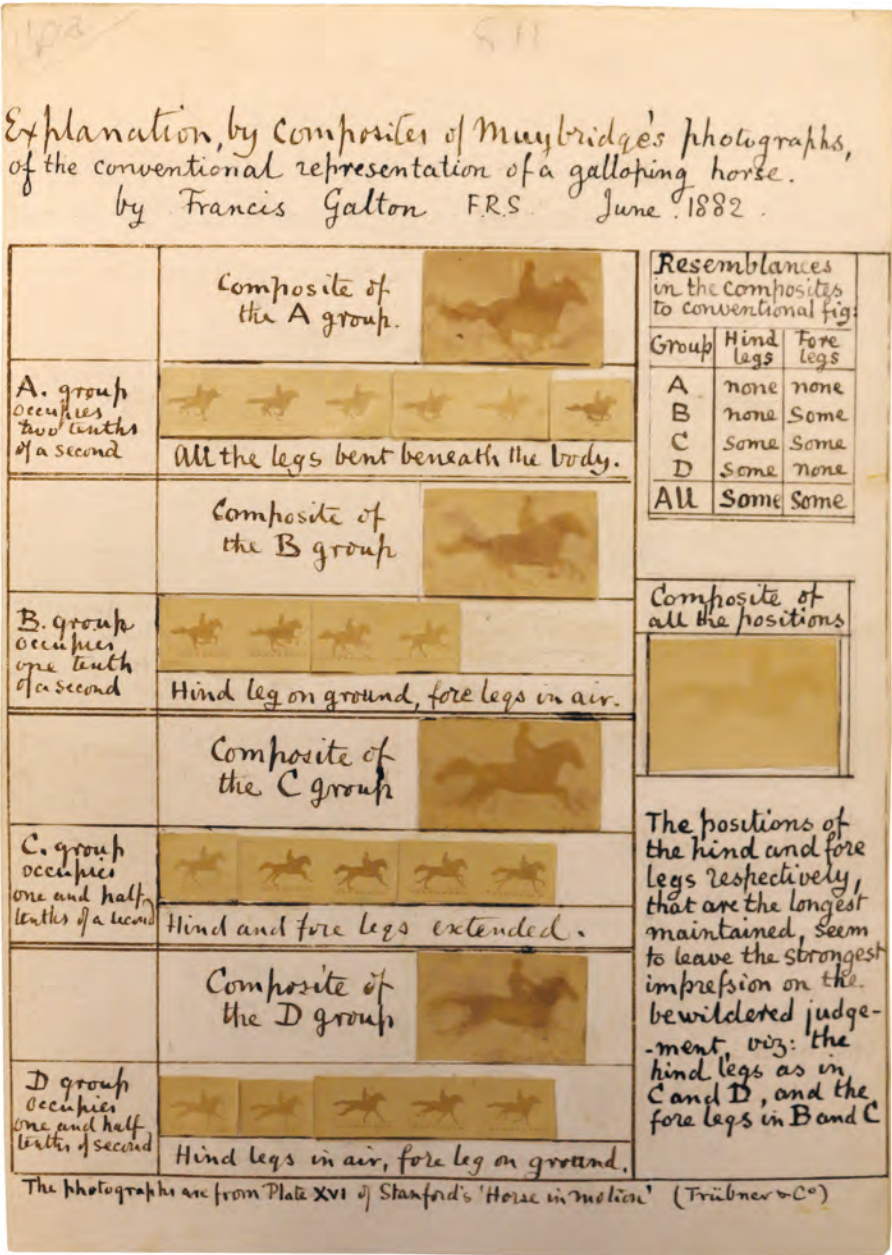 Explanation, by Composites of Muybridge's photographs,
of the conventional representation of a galloping horse.
by Francis Galton F.R.S. June 1882.
Composite of
the A group.
A. group
occupies
two tenths
of a second
All the legs bent beneath the body.
Composite of
the B group
B. group
occupies
one tenth
of a second
Hind leg on ground, fore legs in air.
Composite of
the C group
C. group
occupies
one and half
tenths of a second
Hind and fore legs extended.
Composite of
the D group
D group
occupies
one and half
tenths of second
Hind legs in air, fore leg on ground.
Resemblances
in the composites
to conventional fig:
Group Hind legs Fore legs
A none none
B none Some
C Some Some
D Some none
All Some Some
Composite of
all the positions
The positions of
the hind and fore
legs respectively,
that are the longest
maintained, seem
to leave the strongest
impression on the
bewildered judge-
-ment, viz: the
hind legs as in
C and D, and the
fore legs in B and C
The photographs are from Plate XVI of Stanford's 'Horse in motion' (Trübner & Co)